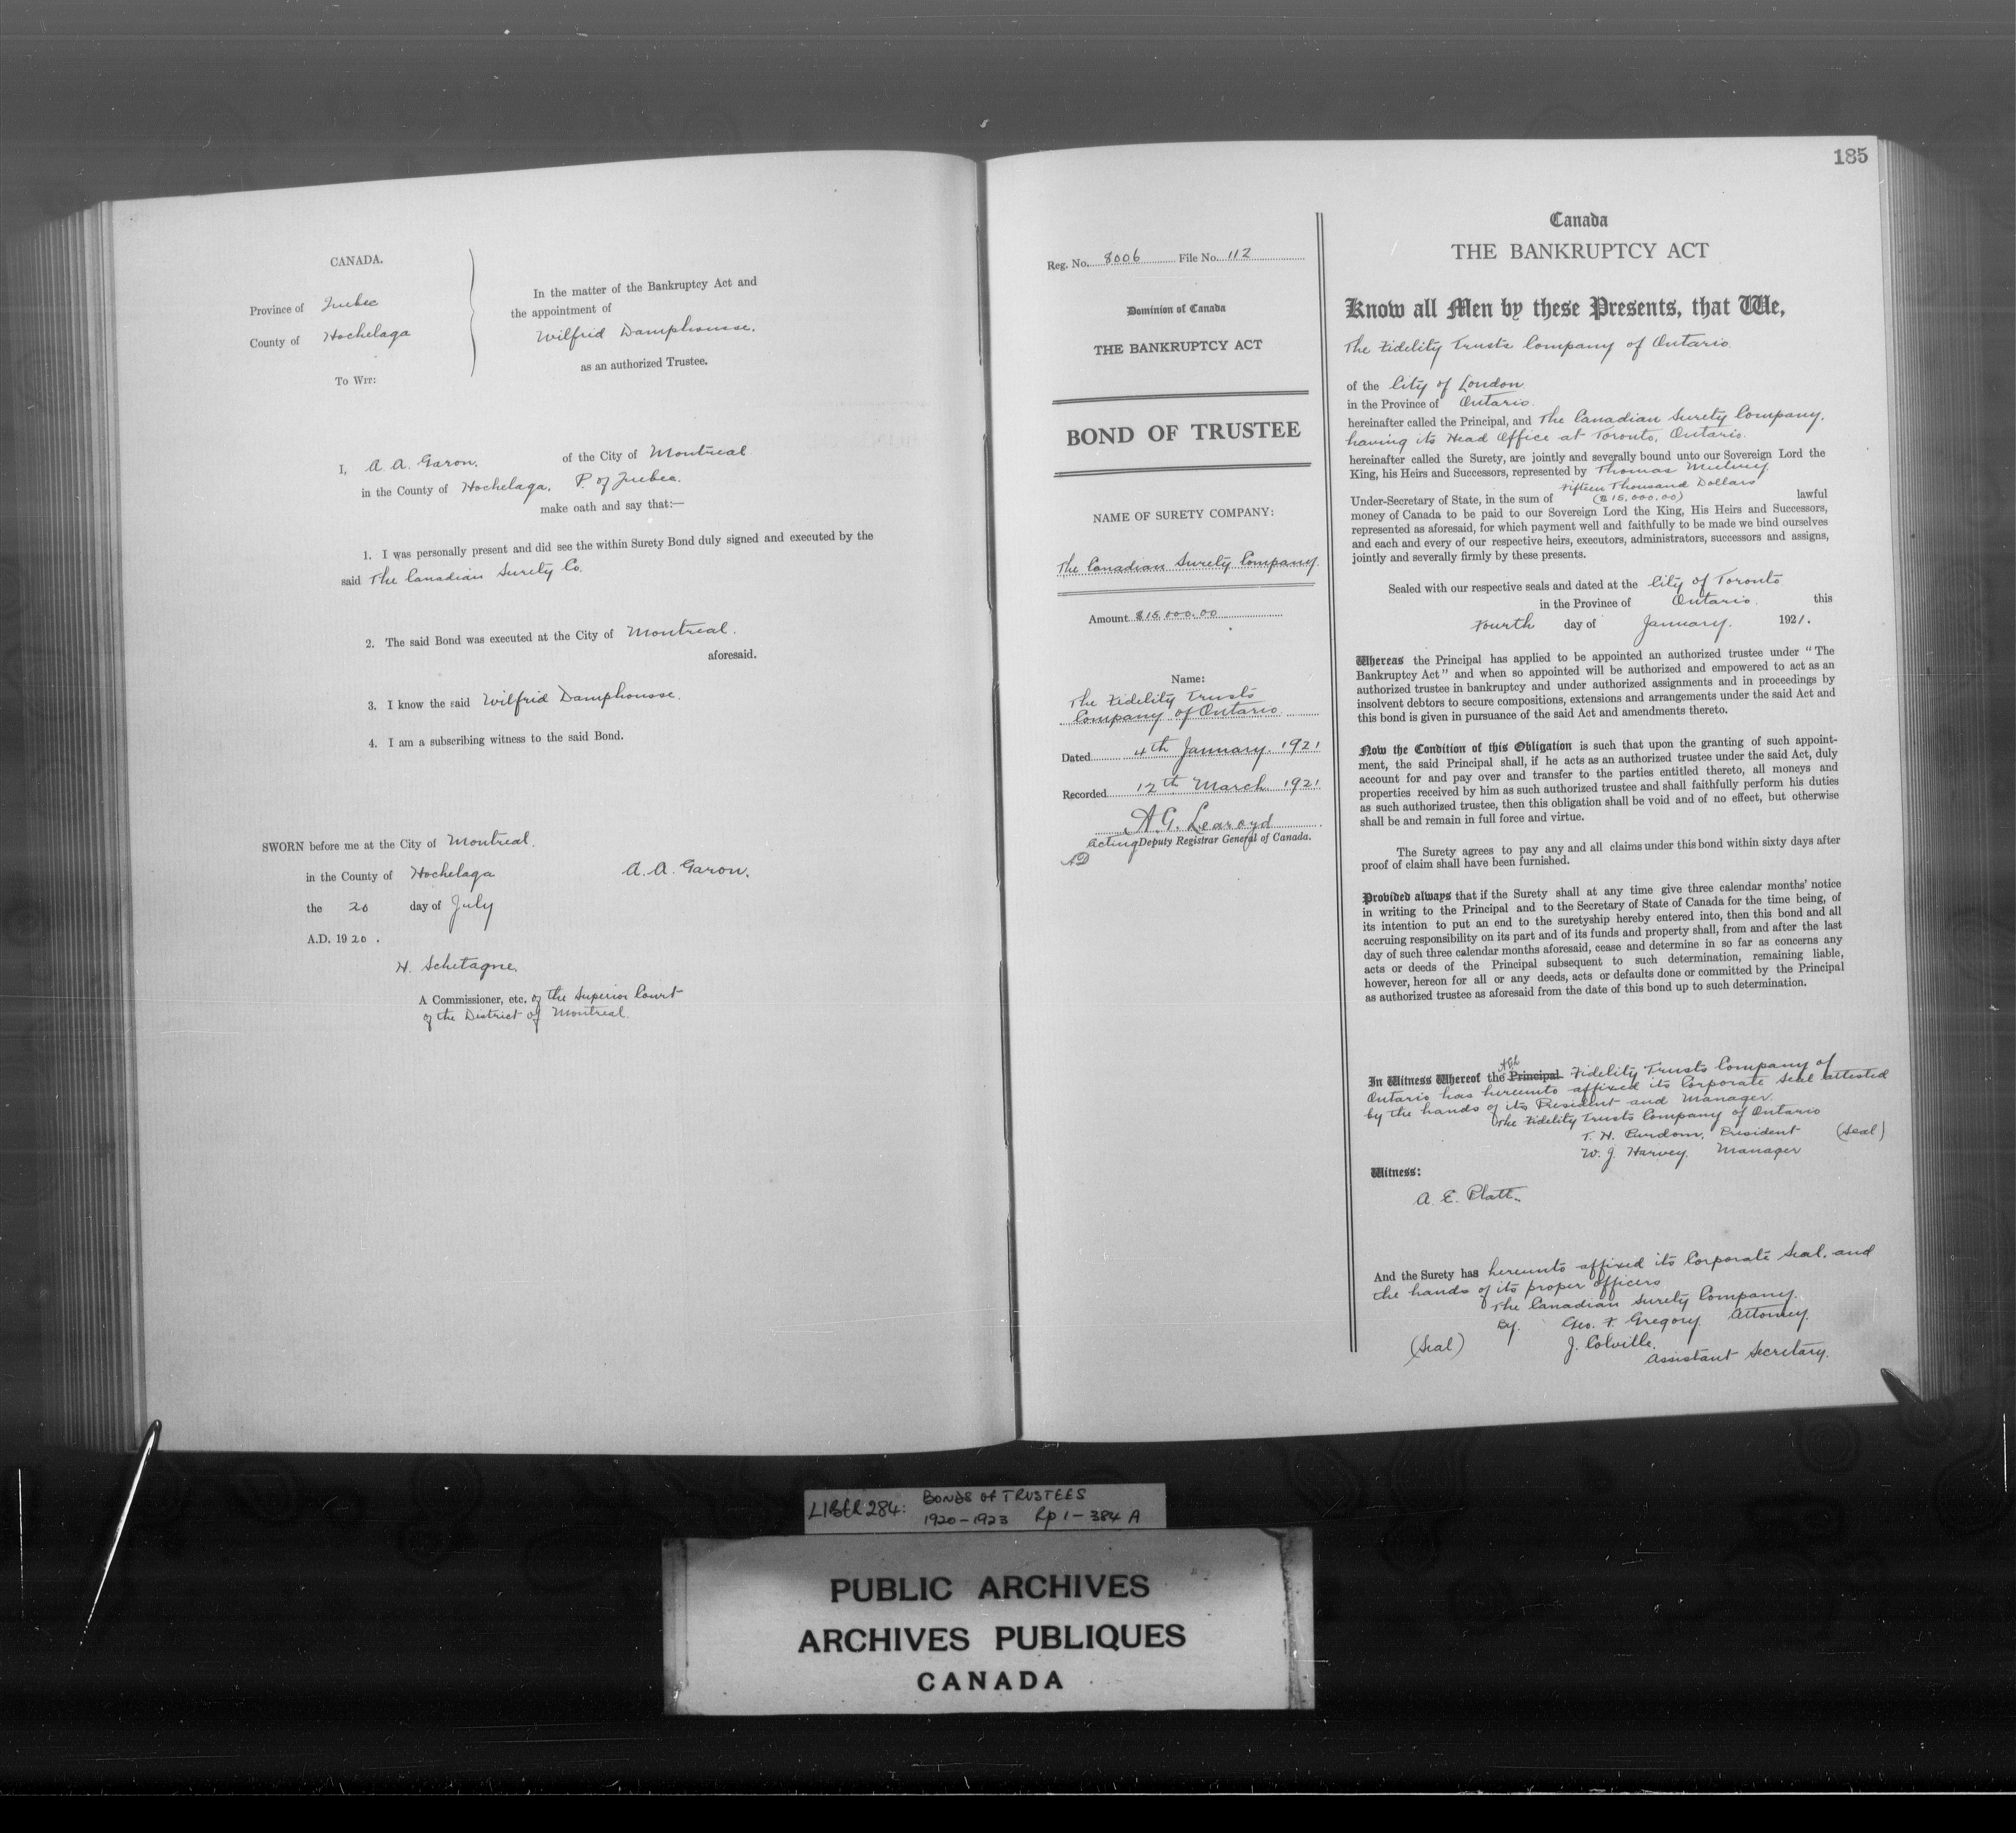 CANADA.
Province of Quebec
County of Hochelaga
To Wit:
In the matter of the Bankruptcy Act and
the appointment of
Wilfrid Damphousse.
as an authorized Trustee.
I, A. A. Garon, of the City of Montreal
in the County of Hochelaga, P. of Quebec.
make oath and say that:—
1. I was personally present and did see the within Surety Bond duly signed and executed by the
said The Canadian Surety Co.
2. The said Bond was executed at the City of Montreal.
aforesaid.
3. I know the said Wilfrid Damphousse.
4. I am a subscribing witness to the said Bond.
SWORN before me at the City of Montreal.
in the County of Hochelaga
A. A. Garon.
the 20 day of July
A.D. 1920.
H. Schetagne.
A Commissioner, etc. of the Superior Court
of the District of Montreal.
185
Reg. No. 8006 File No. 112
Dominion of Canada
THE BANKRUPTCY ACT
BOND OF TRUSTEE
NAME OF SURETY COMPANY:
The Canadian Surety Company.
Amount $15,000.00
Name:
The Fidelity Trusts
Company of Ontario
Dated 4th January. 1921
Recorded 12th March 1921
A. G. Learoyd
Acting Deputy Registrar General of Canada.
AD
Canada
THE BANKRUPTCY ACT
Know all Men by these Presents, that We,
The Fidelity Trusts Company of Ontario.
of the City of London
in the Province of Ontario.
hereinafter called the Principal, and The Canadian Surety Company,
having its Head Office at Toronto, Ontario.
hereinafter called the Surety, are jointly and severally bound unto our Sovereign Lord the
King, his Heirs and Successors, represented by Thomas Mulvey.
Under-Secretary of State, in the sum of Fifteen Thousand Dollars ($15,000.00) lawful
money of Canada to be paid to our Sovereign Lord the King, His Heirs and Successors,
represented as aforesaid, for which payment well and faithfully to be made we bind ourselves
and each and every of our respective heirs, executors, administrators, successors and assigns,
jointly and severally firmly by these presents.
Sealed with our respective seals and dated at the City of Toronto
in the Province of Ontario. this
Fourth day of January. 1921.
Whereas the Principal has applied to be appointed an authorized trustee under "The
Bankruptcy Act" and when so appointed will be authorized and empowered to act as an
authorized trustee in bankruptcy and under authorized assignments and in proceedings by
insolvent debtors to secure compositions, extensions and arrangements under the said Act and
this bond is given in pursuance of the said Act and amendments thereto.
Now the Condition of this Obligation is such that upon the granting of such appoint-
ment, the said Principal shall, if he acts as an authorized trustee under the said Act, duly
account for and pay over and transfer to the parties entitled thereto, all moneys and
properties received by him as such authorized trustee and shall faithfully perform his duties
as such authorized trustee, then this obligation shall be void and of no effect, but otherwise
shall be and remain in full force and virtue.
The Surety agrees to pay any and all claims under this bond within sixty days after
proof of claim shall have been furnished.
Provided always that if the Surety shall at any time give three calendar months' notice
in writing to the Principal and to the Secretary of State of Canada for the time being, of
its intention to put an end to the suretyship hereby entered into, then this bond and all
accruing responsibility on its part and of its funds and property shall, from and after the last
day of such three calendar months aforesaid, cease and determine in so far as concerns any
acts or deeds of the Principal subsequent to such determination, remaining liable,
however, hereon for all or any deeds, acts or defaults done or committed by the Principal
as authorized trustee as aforesaid from the date of this bond up to such determination.
In Witness Whereof the Principal Fidelity Trusts Company of
Ontario has hereunto affixed its Corporate Seal attested
by the hands of its President and Manager.
The Fidelity Trusts Company of Ontario
T. H. Purdom, President (Seal)
W. J. Harvey. Manager
Witness:
A. E. Platt.
And the Surety has hereunto affixed its Corporate Seal, and
the hands of its proper officers
The Canadian Surety Company.
By. Geo. F. Gregory. Attorney.
(Seal) J. Colville.
Assistant Secretary.
LIBER 284: BONDS OF TRUSTEES
1920-1923 Rp 1-384A
PUBLIC ARCHIVES
ARCHIVES PUBLIQUES
CANADA